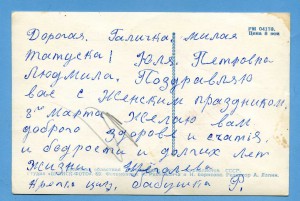 Дорогая. Галичка, милая
Татуска! Юля. Петровна
Людмила. Поздравляю
вас с Женским праздником,
8го Марта. Желаю вам
доброго здоровя и счатя,
и бодрости и долгих лет
жизни.
целую, бабушка
Цена 6 коп